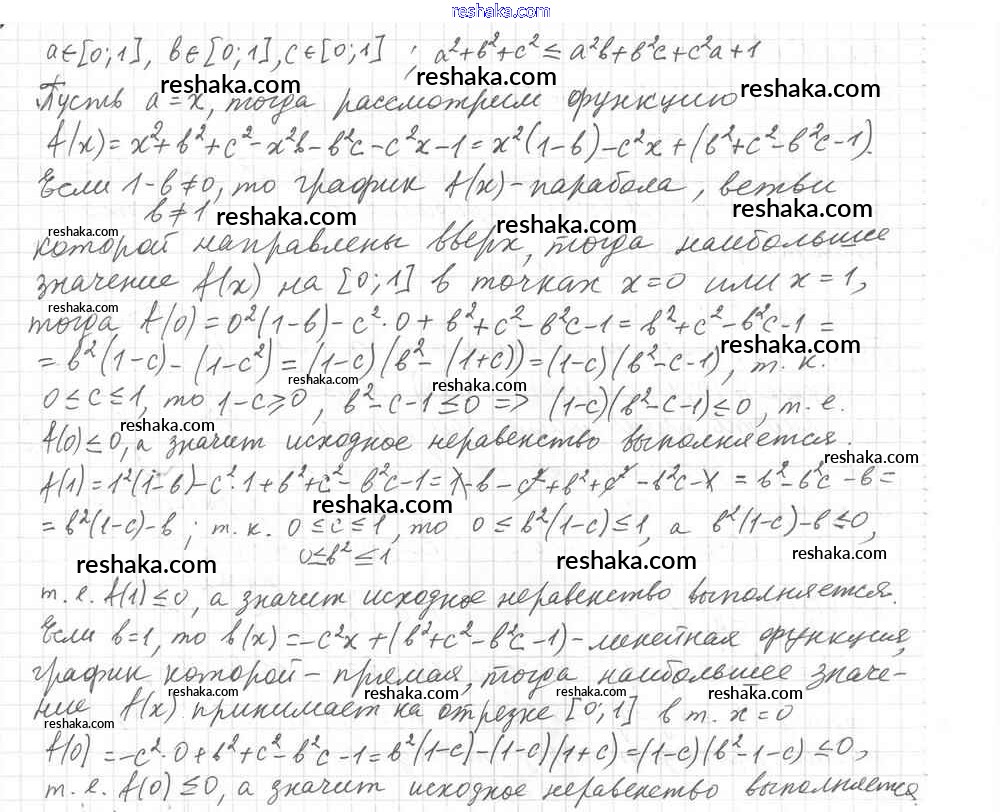 reshaka.com
a∈[0;1], в∈[0;1], c∈[0;1] ; a²+в²+c² ≤ a²в+в²c+c²a+1
reshaka.com reshaka.com reshaka.com
Пусть a=x, тогда рассмотрим функцию
f(x)=x²+в²+c²-x²в-в²c-c²x-1=x²(1-в)-c²x+(в²+c²-в²c-1).
Если 1-в≠0, то график f(x)-парабола, ветви
в≠1
reshaka.com reshaka.com reshaka.com reshaka.com
которой направлены вверх, тогда наибольшее
значение f(x) на [0;1] в точках x=0 или x=1,
reshaka.com
тогда f(0)=0²(1-в)-c²·0+в²+c²-в²c-1=в²+c²-в²c-1=
reshaka.com
=в²(1-c)-(1-c²)=(1-c)(в²-(1+c))=(1-c)(в²-c-1), т.к.
reshaka.com reshaka.com
0≤c≤1, то 1-c≥0, в²-c-1≤0 => (1-c)(в²-c-1)≤0, т.е.
reshaka.com
f(0)≤0, а значит исходное неравенство выполняется.
reshaka.com
f(1)=1²(1-в)-c²·1+в²+c²-в²c-1=1-в-c²+в²+c²-в²c-1=в²-в²c-в=
reshaka.com
=в²(1-c)-в; т.к. 0≤c≤1, то 0≤в²(1-c)≤1, а в²(1-c)-в≤0,
0≤в²≤1
reshaka.com reshaka.com reshaka.com
т.е. f(1)≤0, а значит исходное неравенство выполняется.
Если в=1, то в(x)=-c²x+(в²+c²-в²c-1)-линейная функция,
график которой-прямая, тогда наибольшее значе-
reshaka.com reshaka.com reshaka.com reshaka.com
ние f(x) принимает на отрезке [0;1] в т. x=0
reshaka.com
f(0)=-c²·0+в²+c²-в²c-1=в²(1-c)-(1-c)(1+c)=(1-c)(в²-1-c)≤0,
т.е. f(0)≤0, а значит исходное неравенство выполняется